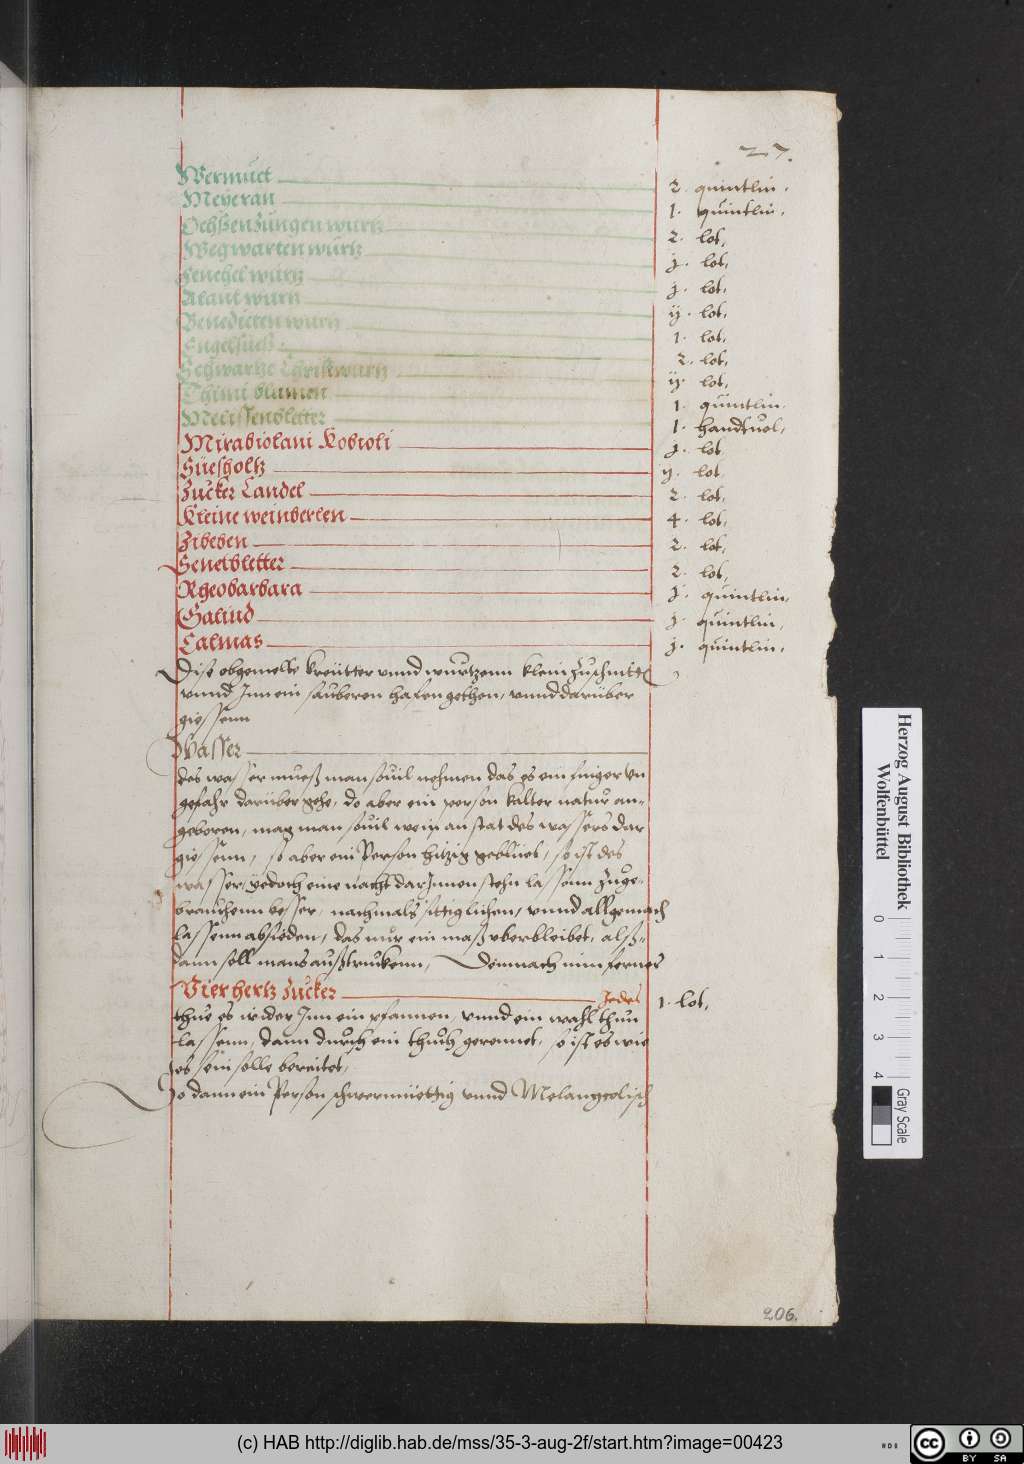 27.
Wermuet 2. quintlin.
Meyeran 1. quintlin.
Ochssenzungen wurtz 2. lot.
Wegwarten wurtz j. lot.
Fenchel wurtz j. lot.
Alant wurtz ij. lot.
Benedicten wurtz 1. lot.
Engelsueß 2. lot.
Schwartze Christwurtz ij. lot.
Thimi blumen 1. quintlin.
Melissenbletter 1. handtvol.
Mirabolani Kobioli j. lot
Süesholtz ij. lot
Zucker Candel 2. lot.
Kleine weinberlen 4. lot.
Zibeben 2. lot.
Senetbletter 2. lot.
Rheobarbara j. quintlin.
Galind j. quintlin.
Calmas j. quintlin.
Dise obgemelte kreütter vnnd wurtzenn klein zuschnitt
vnnd Inn ein sauberen hafen gethon, vnnd darüber
giessenn
Wasser
des wasser mueß man souil nehmen das es ein finger vn
gefahr darüber gehe, do aber ein person kalter natur an-
geboren, mag man souil wein an stat des wassers dar
giessenn, so aber ein Person hitzig geblüet, so ist des
wasser, yedoch eine nacht darInnen stehn lassenn zuge-
brauchenn besser, nachmals sittiglichen, vnnd allgemach
lassenn absieden, das nur ein maß vberbleibet, alß-
dann soll mans außtruckenn, Demnach nim ferner
Vier hertz zucker Jedes 1. lot.
thue es wider Inn ein pfannen, vnnd ein wahl thun
lassenn, dann durch ein thuch gerennet, so ist es wie
es sein solle bereitet,
So dann ein Person schwermüettig vnnd Melangcolisch
206.
Herzog August Bibliothek
Wolfenbüttel
0 1 2 3 4
Gray Scale
(c) HAB http://diglib.hab.de/mss/35-3-aug-2f/start.htm?image=00423
cc BY SA